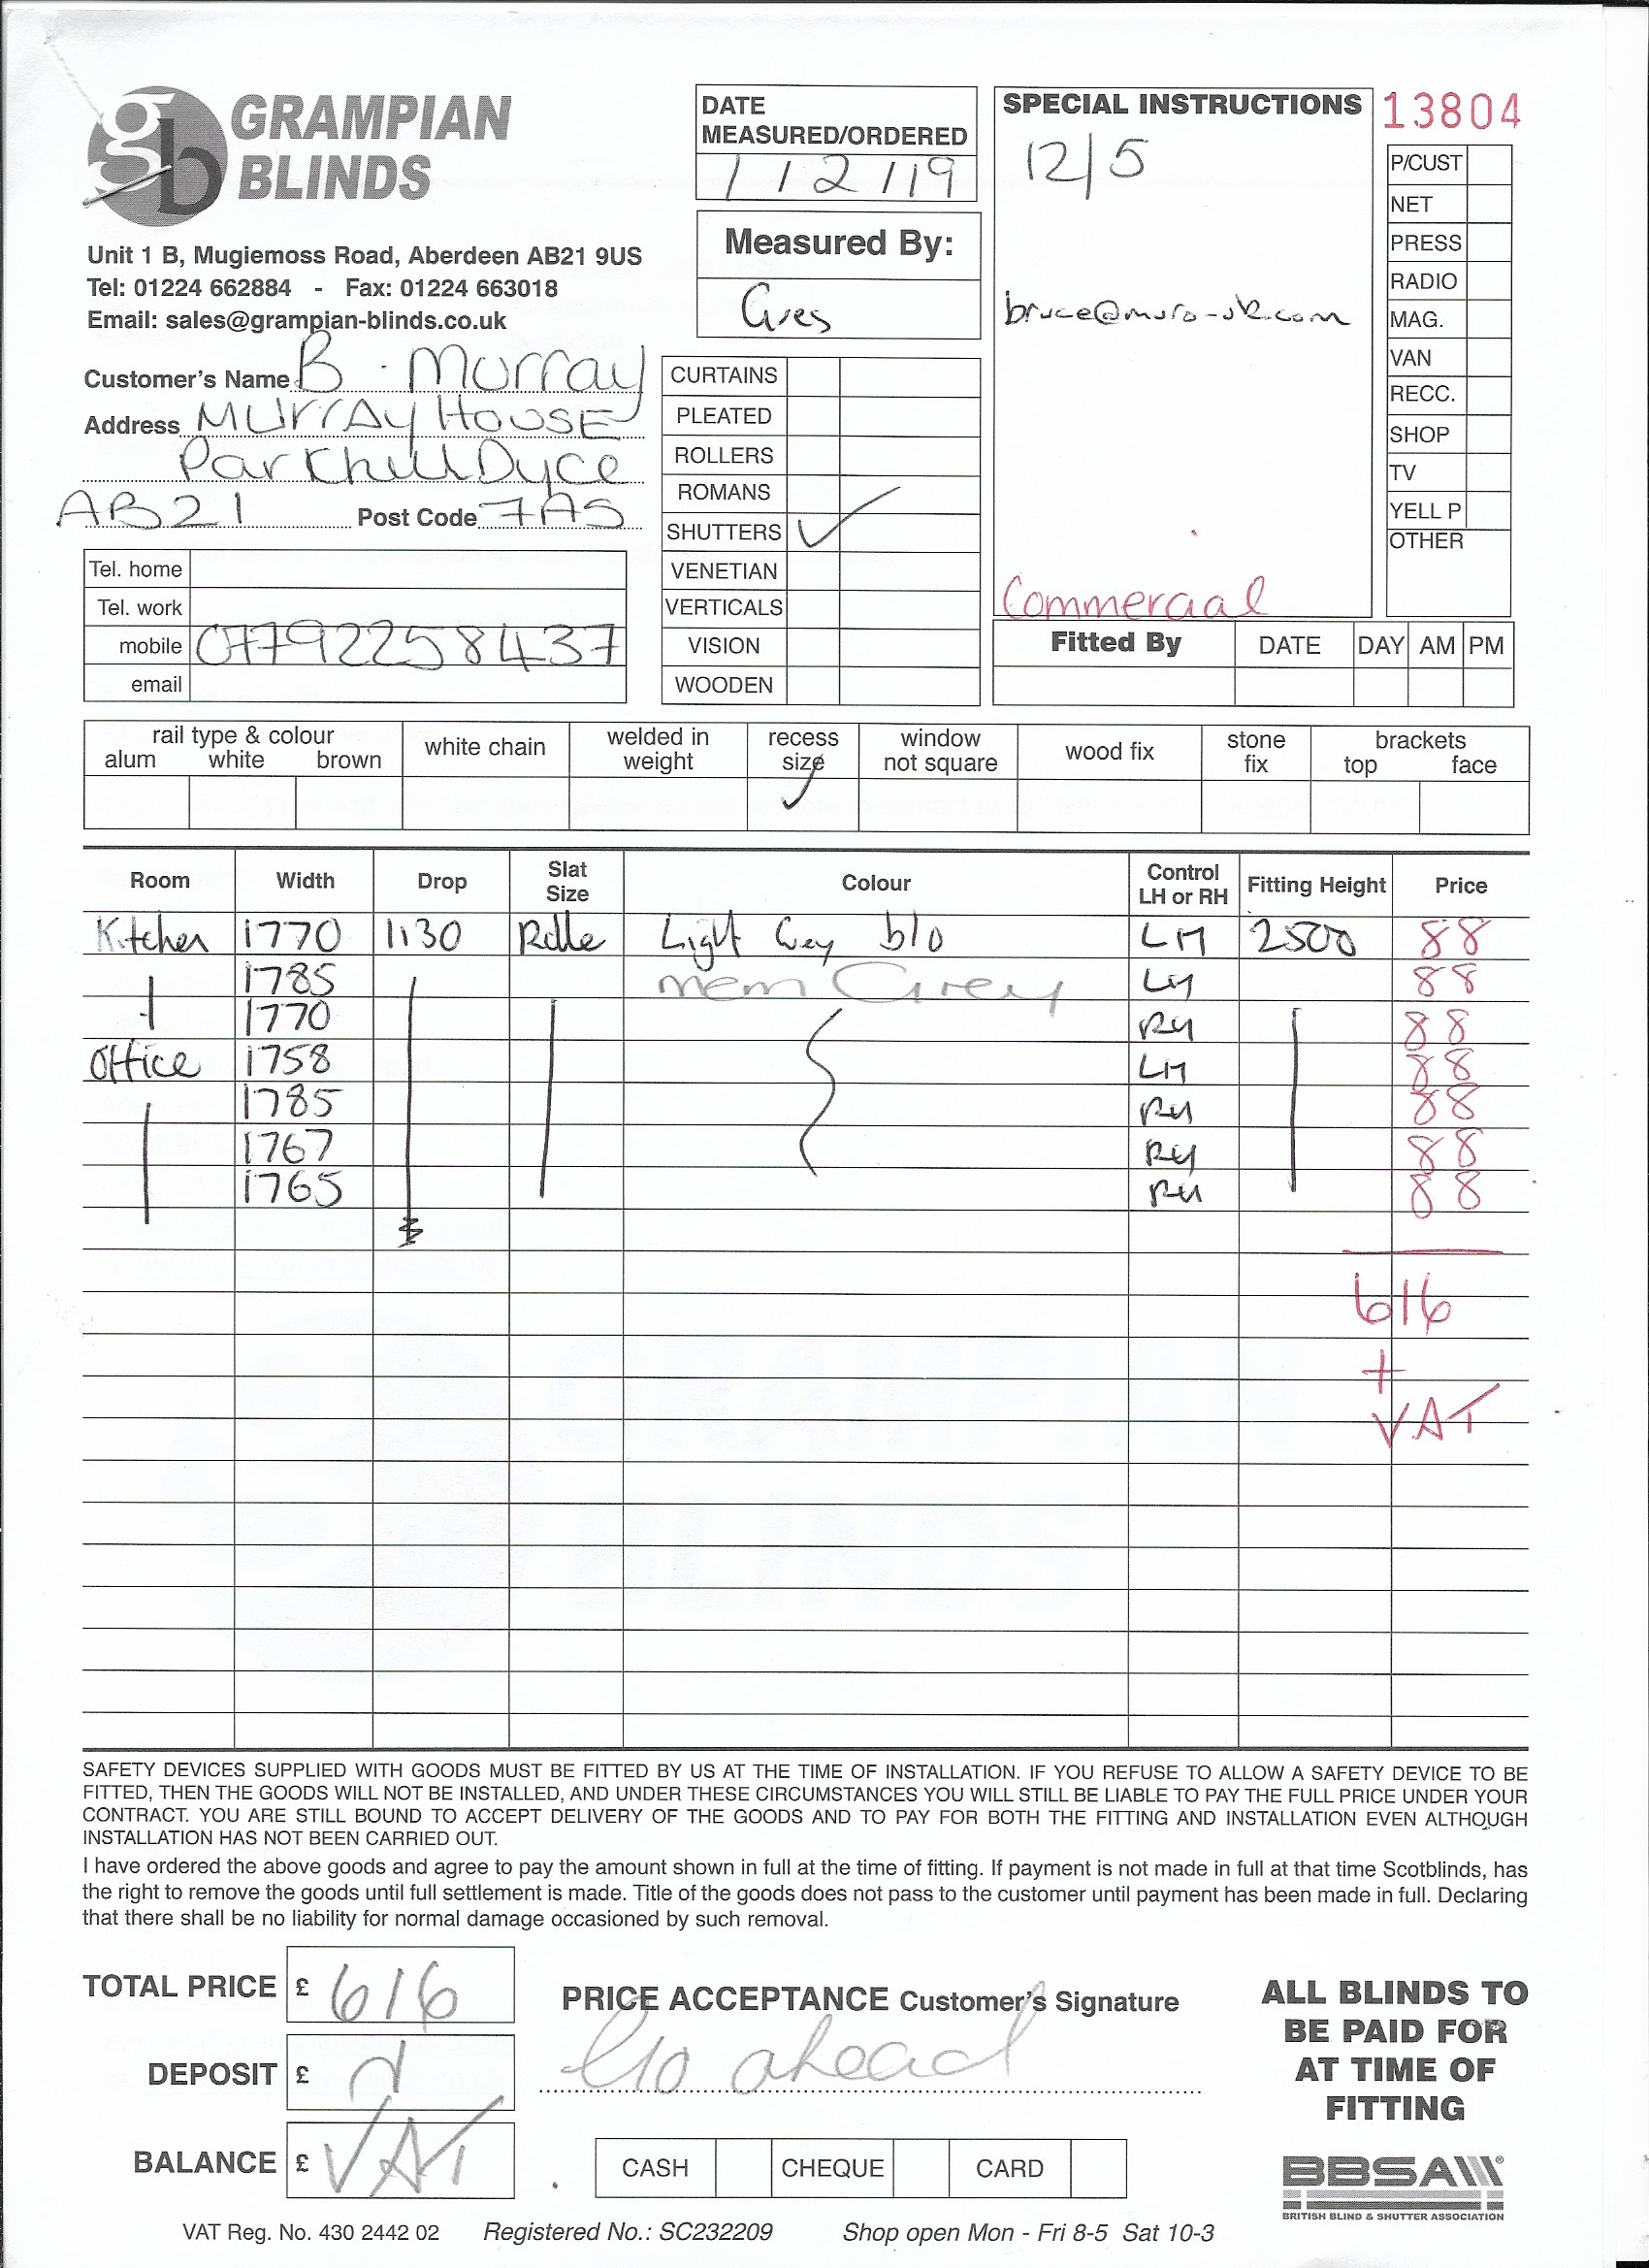 gb GRAMPIAN BLINDS
Unit 1 B, Mugiemoss Road, Aberdeen AB21 9US
Tel: 01224 662884 - Fax: 01224 663018
Email: sales@grampian-blinds.co.uk
Customer's Name B. Murray
Address MURRAY HOUSE
Parkhill Dyce
AB21 Post Code 7AS
Tel. home
Tel. work
mobile 07792258437
email
DATE
MEASURED/ORDERED
1/12/19
Measured By:
CURTAINS
PLEATED
ROLLERS
ROMANS
SHUTTERS ✓
VENETIAN
VERTICALS
VISION
WOODEN
SPECIAL INSTRUCTIONS
12/5
bruce@muro-uk.com
Commercial
13804
P/CUST
NET
PRESS
RADIO
MAG.
VAN
RECC.
SHOP
TV
YELL P
OTHER
Fitted By DATE DAY AM PM
rail type & colour
alum white brown
white chain
welded in weight
recess size ✓
window not square
wood fix
stone fix
brackets
top face
Room Width Drop Slat Size Colour Control LH or RH Fitting Height Price
Kitchen 1770 1130 Light Grey b/o LH 2500 88
1785 Grey LH 88
1770 RH 88
Office 1758 LH 88
1785 RH 88
1767 RH 88
1765 RH 88
616
+
VAT
SAFETY DEVICES SUPPLIED WITH GOODS MUST BE FITTED BY US AT THE TIME OF INSTALLATION. IF YOU REFUSE TO ALLOW A SAFETY DEVICE TO BE
FITTED, THEN THE GOODS WILL NOT BE INSTALLED, AND UNDER THESE CIRCUMSTANCES YOU WILL STILL BE LIABLE TO PAY THE FULL PRICE UNDER YOUR
CONTRACT. YOU ARE STILL BOUND TO ACCEPT DELIVERY OF THE GOODS AND TO PAY FOR BOTH THE FITTING AND INSTALLATION EVEN ALTHOUGH
INSTALLATION HAS NOT BEEN CARRIED OUT.
I have ordered the above goods and agree to pay the amount shown in full at the time of fitting. If payment is not made in full at that time Scotblinds, has
the right to remove the goods until full settlement is made. Title of the goods does not pass to the customer until payment has been made in full. Declaring
that there shall be no liability for normal damage occasioned by such removal.
TOTAL PRICE £ 616
DEPOSIT £
BALANCE £ VAT
PRICE ACCEPTANCE Customer's Signature
Go ahead
CASH CHEQUE CARD
ALL BLINDS TO
BE PAID FOR
AT TIME OF
FITTING
BBSA
BRITISH BLIND & SHUTTER ASSOCIATION
VAT Reg. No. 430 2442 02 Registered No.: SC232209 Shop open Mon - Fri 8-5 Sat 10-3